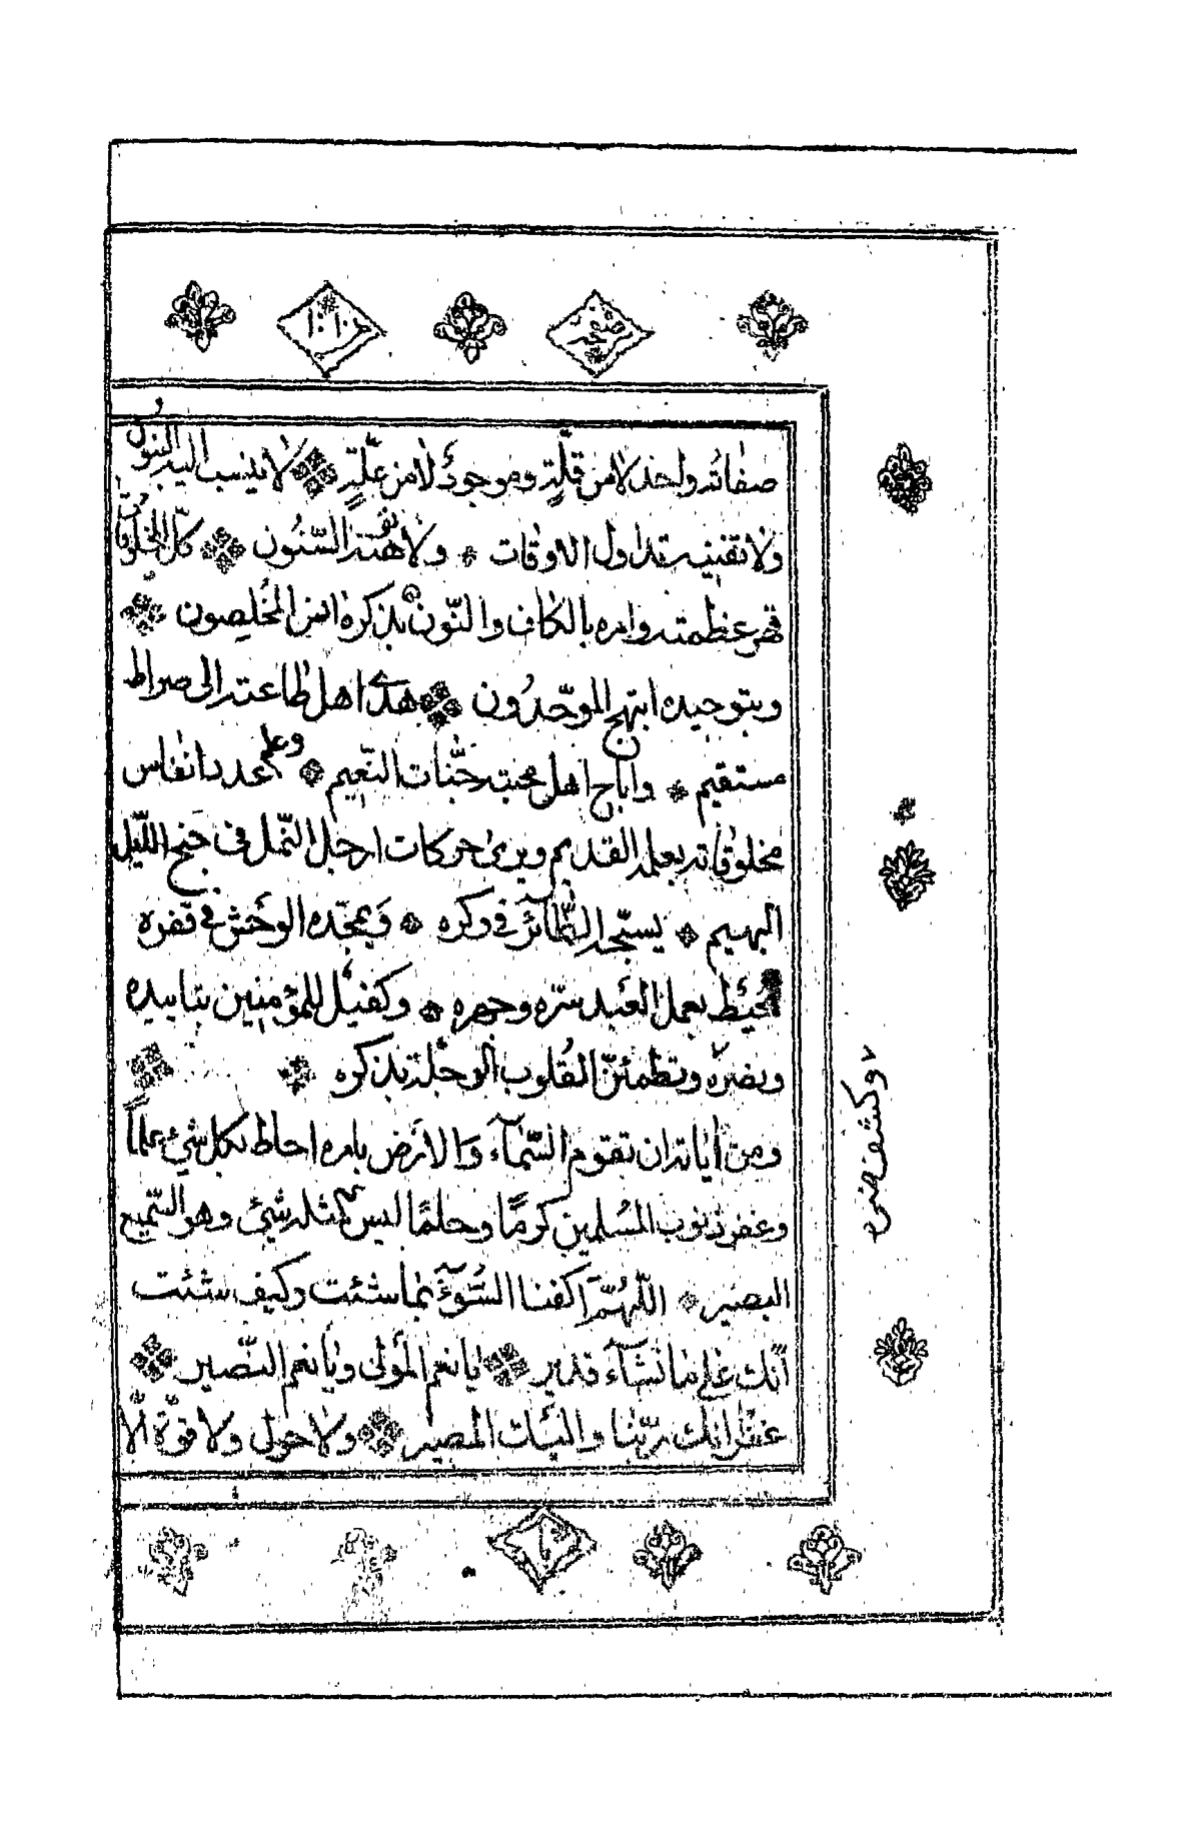 صفاته واحد لا من قلّةٍ وموجودٌ لا من علّةٍ لا ينسب اليه البنون
ولا تفنيه تداول الاوقات ولا تقنته السّنُون كلّ المخلوقات
قهر عظمته وامره بالكاف والنّون بذكره انس المخلصون
وبتوحيده ابتهج الموحّدُون هدى اهل طاعته الى صراط
مستقيم واباح اهل محبته جنّات النّعيم وعلم عدد انفاس
مخلوقاته بعلمه القديم ويرى حركات ارجل النّمل فى جنح اللّيل
البهيم يسبّحه الطّآئر فى وكره ويمجّده الوحش فى قفره
محيط بعمل العبد سرّه وجهره وكفيل للمؤمنين بتاييده
ونصره وتطمئنّ القُلوب الوجلة بذكره
وكشف ضره
ومن اياته ان تقوم السّمآء والارض بامره احاط بكل شيئ علماً
وغفر ذنوب المسلمين كرمًا وحلمًا ليس كمثله شيئ وهو السّميع
البصير اللّهُمّ اكفنا السُّوٓءَ بما شئت وكيف شئت
انّك على ما تشآء قدير يا نعم المَولى ويا نعم النّصير
غفرانك ربّنا واليك المصير ولا حول ولا قوّة الّا